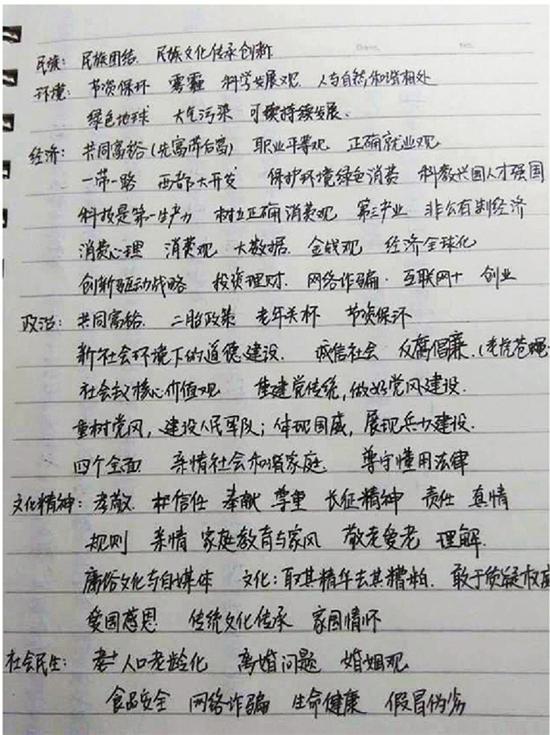 民族: 民族团结 民族文化传承创新
环境: 节资保环 雾霾 科学发展观 人与自然和谐相处
绿色地球 大气污染 可续持续发展.
经济: 共同富裕(先富带后富) 职业平等观 正确就业观
一带一路 西部大开发 保护环境绿色消费 科教兴国人才强国
科技是第一生产力 树立正确消费观 第三产业 非公有制经济
消费心理 消费观 大数据. 金钱观 经济全球化
创新驱动战略 投资理财. 网络诈骗. 互联网+ 创业
政治: 共同富裕. 二胎政策 老年关怀 节资保环
新社会环境下的道德建设. 诚信社会 反腐倡廉.(老虎苍蝇
社会主义核心价值观 重建党传统,做好党风建设.
重树党风,建设人民军队;体现国威,展现兵力建设.
四个全面 亲情社会和谐家庭 尊守懂用法律
文化精神: 孝敬. 信任 奉献 尊重 长征精神 责任 真情
规则 亲情 家庭教育与家风 敬老爱老 理解.
庸俗文化与自媒体 文化:取其精华去其糟粕. 敢于质疑权威
爱国感恩 传统文化传承 家国情怀
社会民生: 人口老龄化 离婚问题 婚姻观
食品安全 网络诈骗 生命健康 假冒伪劣